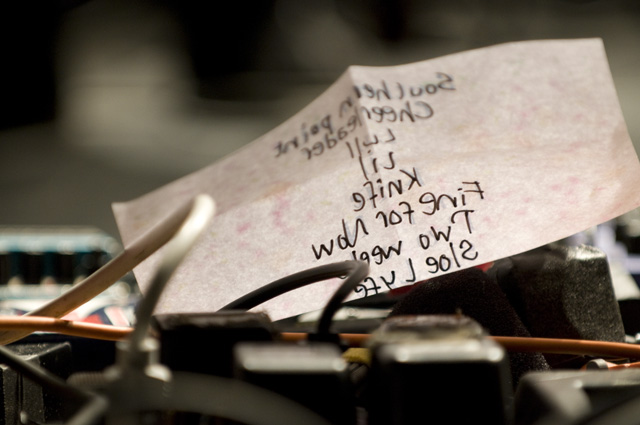 Southern point
Cheerleader
Lull
Lil
Knife
Fine for Now
Two week
Sloe Lyfe